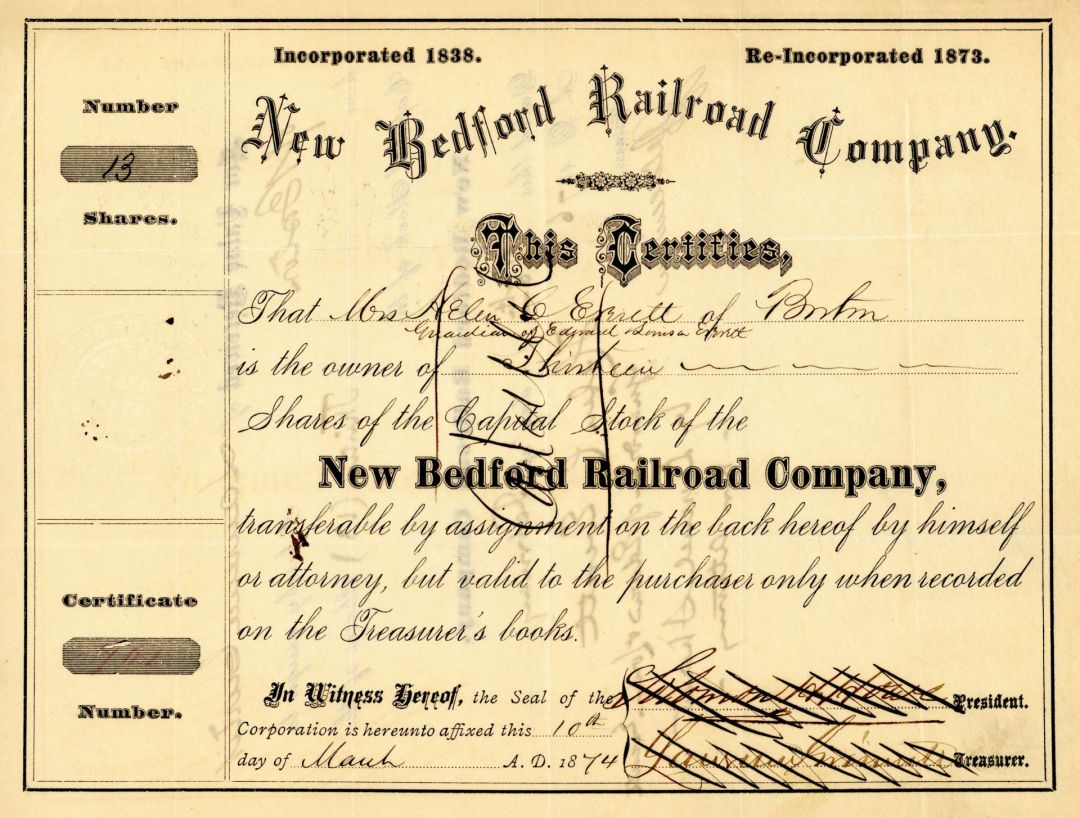 Incorporated 1838.
Re-Incorporated 1873.
New Bedford Railroad Company.
Number
13
Shares.
This Certifies,
That Mrs Helen C Everett of Boston
Guardian of Edward & Louisa Everett
is the owner of Thirteen
Shares of the Capital Stock of the
New Bedford Railroad Company,
transferable by assignment on the back hereof by himself
or attorney, but valid to the purchaser only when recorded
on the Treasurer's books.
Certificate
Number.
In Witness Hereof, the Seal of the
Corporation is hereunto affixed this 10th
day of March A. D. 1874
President.
Treasurer.